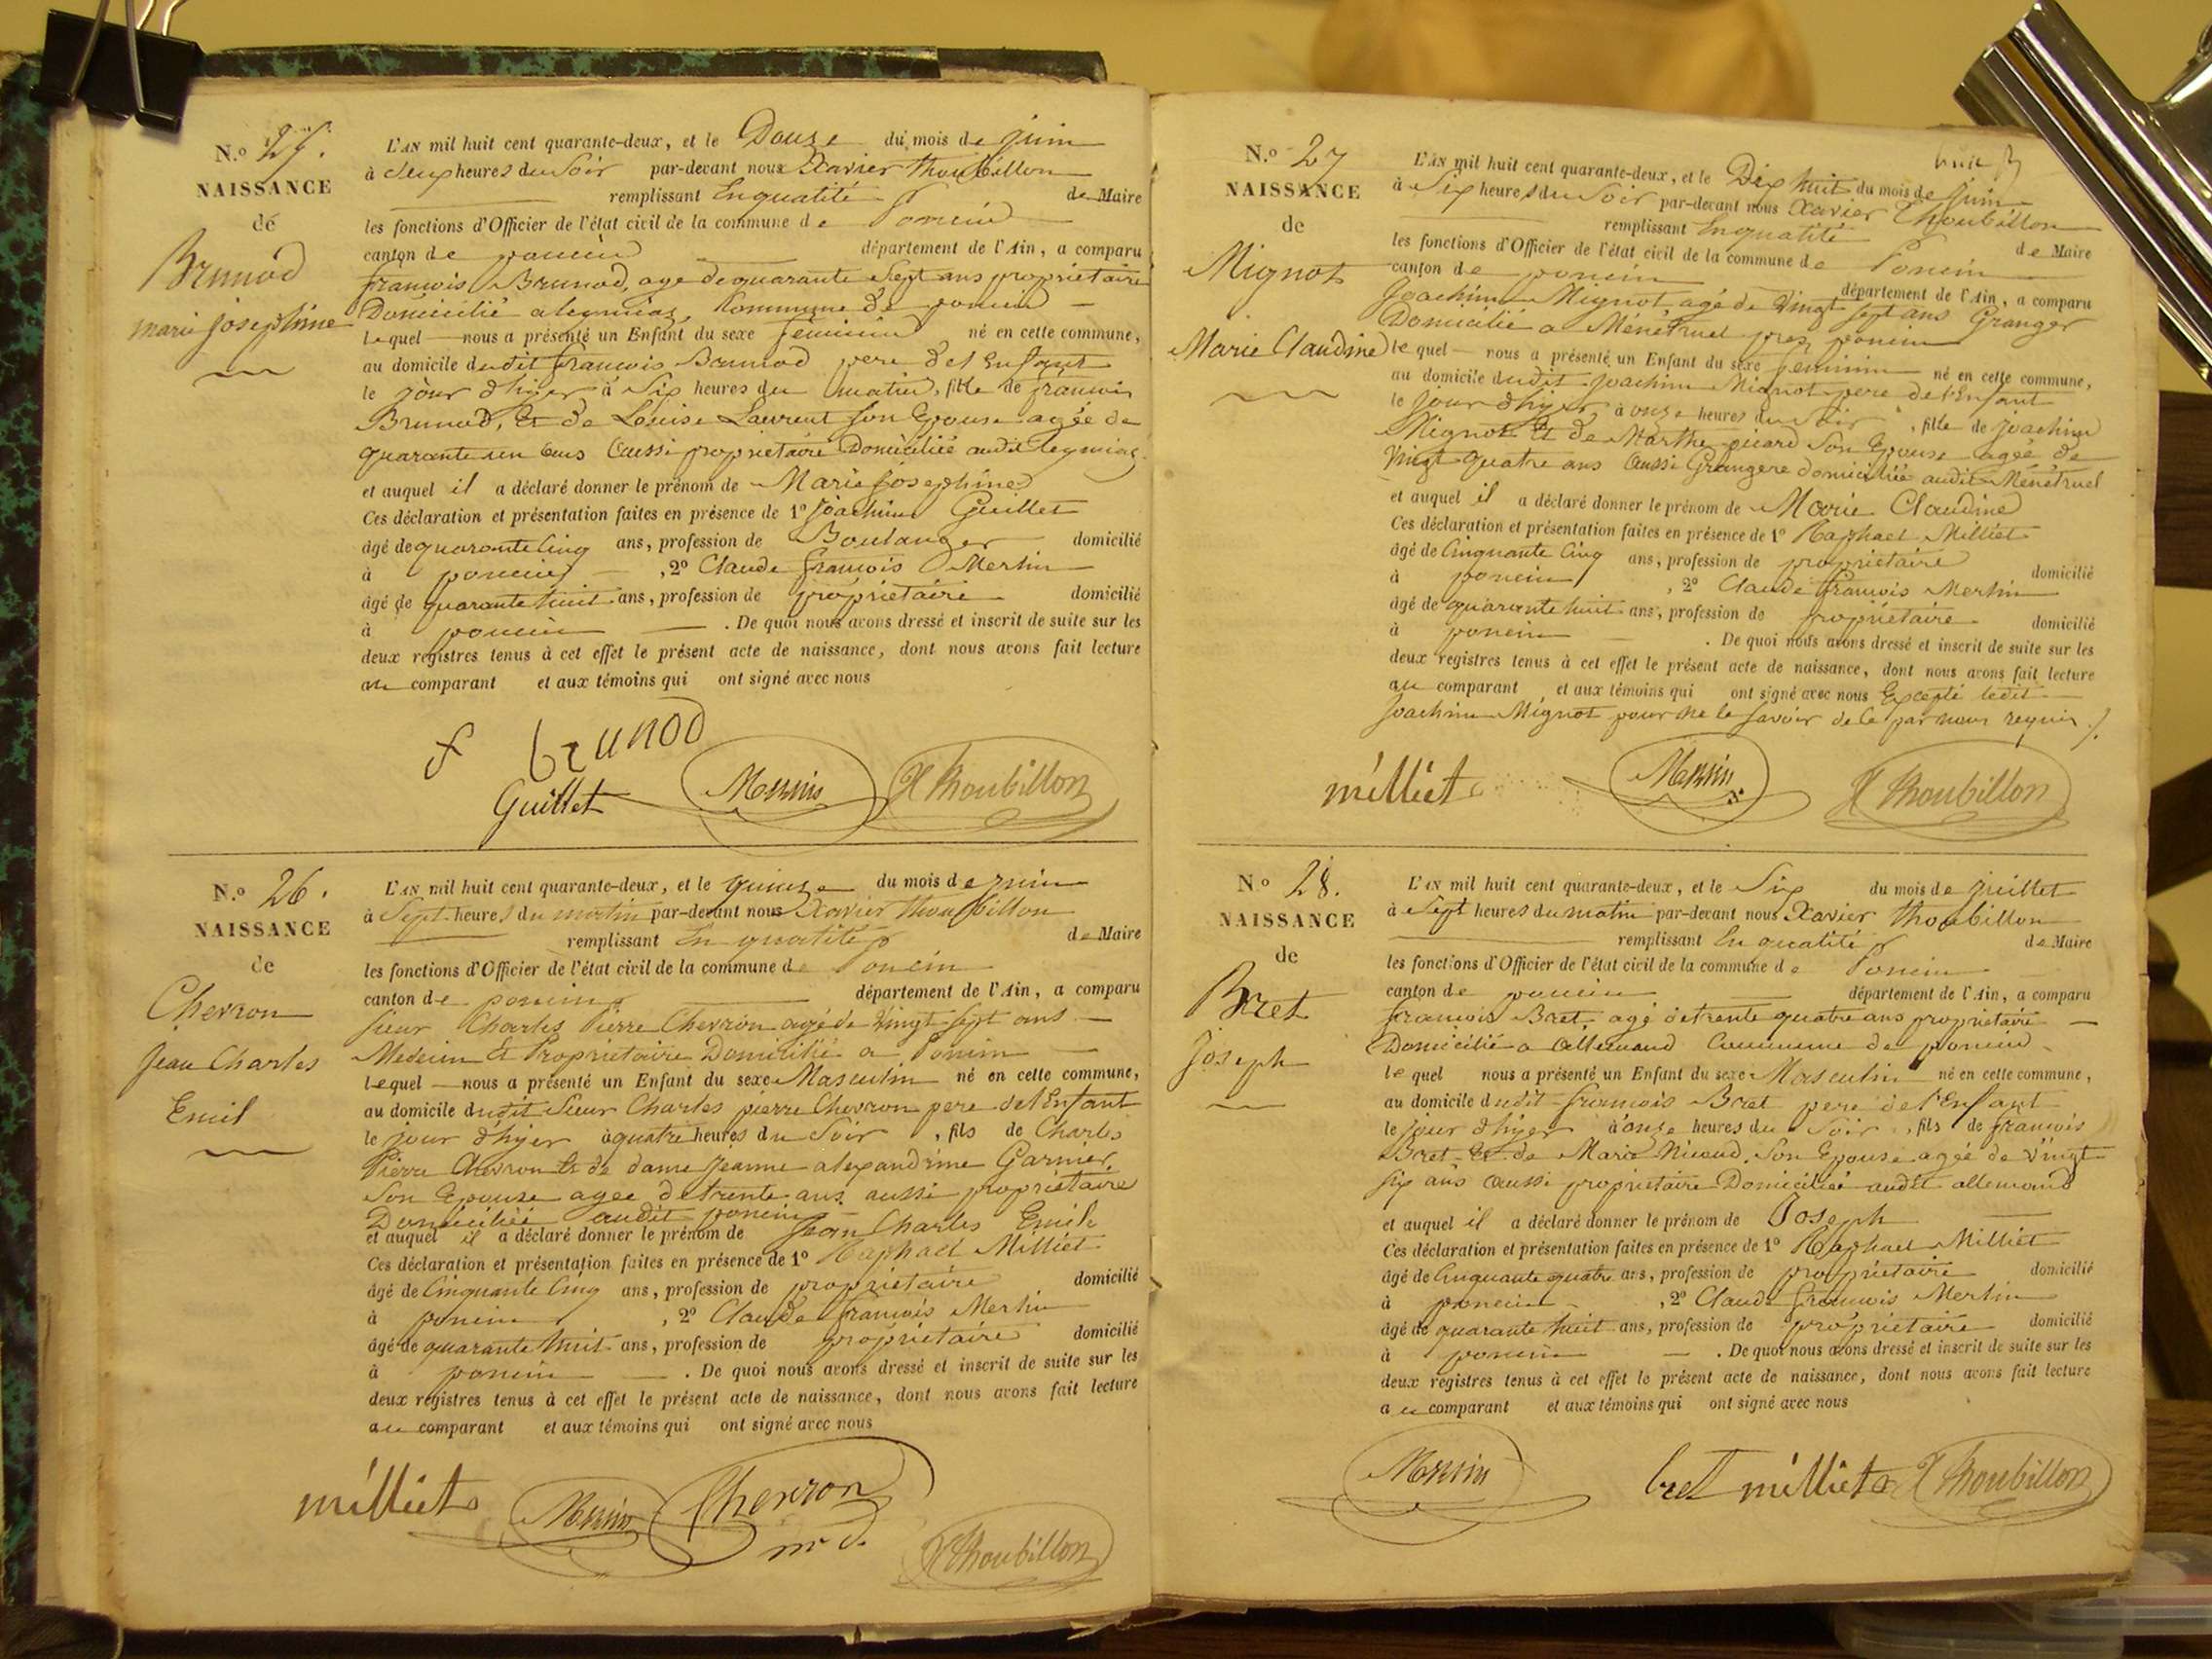 N.o 25.
NAISSANCE
de
Brunod
marie josephine
L'AN mil huit cent quarante-deux, et le Douze du mois de juin
à deux heures du Soir par-devant nous Xavier thoubillon
remplissant En qualité de Maire
les fonctions d'Officier de l'état civil de la commune de Poncin
canton de poncin département de l'Ain, a comparu
francois Brunod, age de quarante Sept ans propriétaire
Domicilié a leymiaz, Kommune de poncin
lequel nous a présenté un Enfant du sexe féminin né en cette commune,
au domicile dudit francois Brunod pere de l'Enfant
le jour d'hyer à Six heures du matin, fille de francois
Brunod, Et de Louise Laurent Son Epouse agée de
quarante un ans aussi propriétaire Domiciliée audit leymiaz
et auquel il a déclaré donner le prénom de Marie josephine
Ces déclaration et présentation faites en présence de 1º Joachim Guillet
âgé de quarante Cinq ans, profession de Boulanger domicilié
à poncin, 2º Claude francois Merlin
âgé de quarante huit ans, profession de propriétaire domicilié
à poncin . De quoi nous avons dressé et inscrit de suite sur les
deux registres tenus à cet effet le présent acte de naissance, dont nous avons fait lecture
au comparant et aux témoins qui ont signé avec nous
f brunod
Guillet X Thoubillon
N.o 26.
NAISSANCE
de
Chevron
Jean Charles
Emil
L'AN mil huit cent quarante-deux, et le quinze du mois de juin
à Sept heures du matin par-devant nous Xavier thoubillon
remplissant En qualité de Maire
les fonctions d'Officier de l'état civil de la commune de Poncin
canton de poncin département de l'Ain, a comparu
Sieur Charles Pierre Chevron agé de Vingt Sept ans
Medecin Et Propriétaire Domicilié a Poncin
lequel nous a présenté un Enfant du sexe Masculin né en cette commune,
au domicile dudit Sieur Charles pierre Chevron pere de l'Enfant
le jour d'hyer à quatre heures du Soir, fils de Charles
Pierre Chevron Et de dame Jeanne alexandrine Garnier
Son Epouse agee de trente ans aussi propriétaire
Domiciliée audit poncin
et auquel il a déclaré donner le prénom de Jean Charles Emile
Ces déclaration et présentation faites en présence de 1º Raphael Milliet
âgé de Cinquante Cinq ans, profession de propriétaire domicilié
à poncin, 2º Claude francois Merlin
âgé de quarante huit ans, profession de propriétaire domicilié
à poncin . De quoi nous avons dressé et inscrit de suite sur les
deux registres tenus à cet effet le présent acte de naissance, dont nous avons fait lecture
au comparant et aux témoins qui ont signé avec nous
milliet Chevron
X Thoubillon
N.o 27
NAISSANCE
de
Mignot
Marie Claudine
L'AN mil huit cent quarante-deux, et le Dix huit du mois de juin
à Six heures du Soir par-devant nous Xavier Thoubillon
remplissant En qualité de Maire
les fonctions d'Officier de l'état civil de la commune de Poncin
canton de poncin département de l'Ain, a comparu
Joachim Mignot agé de Vingt Sept ans Granger
Domicilié a Ménétruel prez poncin
lequel nous a présenté un Enfant du sexe feminin né en cette commune,
au domicile dudit Joachim Mignot pere de l'Enfant
le jour d'hyer à onze heures du Soir, fille de joachim
Mignot Et de Marthe picard Son Epouse agée de
Vingt quatre ans aussi Grangere domiciliée audit Ménétruel
et auquel il a déclaré donner le prénom de Marie Claudine
Ces déclaration et présentation faites en présence de 1º Raphael Milliet
âgé de Cinquante Cinq ans, profession de propriétaire domicilié
à poncin, 2º Claude francois Merlin
âgé de quarante huit ans, profession de propriétaire domicilié
à poncin . De quoi nous avons dressé et inscrit de suite sur les
deux registres tenus à cet effet le présent acte de naissance, dont nous avons fait lecture
au comparant, et aux témoins qui ont signé avec nous Excepté ledit
Joachim Mignot pour ne le Savoir de ce par nous requis ./.
milliet X Thoubillon
N.o 28.
NAISSANCE
de
Bret
Joseph
L'AN mil huit cent quarante-deux, et le Six du mois de juillet
à Sept heures du matin par-devant nous Xavier thoubillon
remplissant En qualité de Maire
les fonctions d'Officier de l'état civil de la commune de Poncin
canton de poncin département de l'Ain, a comparu
francois Bret agé de trente quatre ans propriétaire
Domicilié a allemand Commune de poncin
lequel nous a présenté un Enfant du sexe Masculin né en cette commune,
au domicile dudit francois Bret pere de l'Enfant
le jour d'hyer à onze heures du Soir, fils de francois
Bret Et de Marie Nicoud. Son Epouse agée de Vingt
Six ans aussi propriétaire Domiciliée audit allemand
et auquel il a déclaré donner le prénom de Joseph
Ces déclaration et présentation faites en présence de 1º Raphael Milliet
âgé de Cinquante quatre ans, profession de propriétaire domicilié
à poncin, 2º Claude francois Merlin
âgé de quarante huit ans, profession de propriétaire domicilié
à poncin . De quoi nous avons dressé et inscrit de suite sur les
deux registres tenus à cet effet le présent acte de naissance, dont nous avons fait lecture
au comparant et aux témoins qui ont signé avec nous
bret milliet X Thoubillon